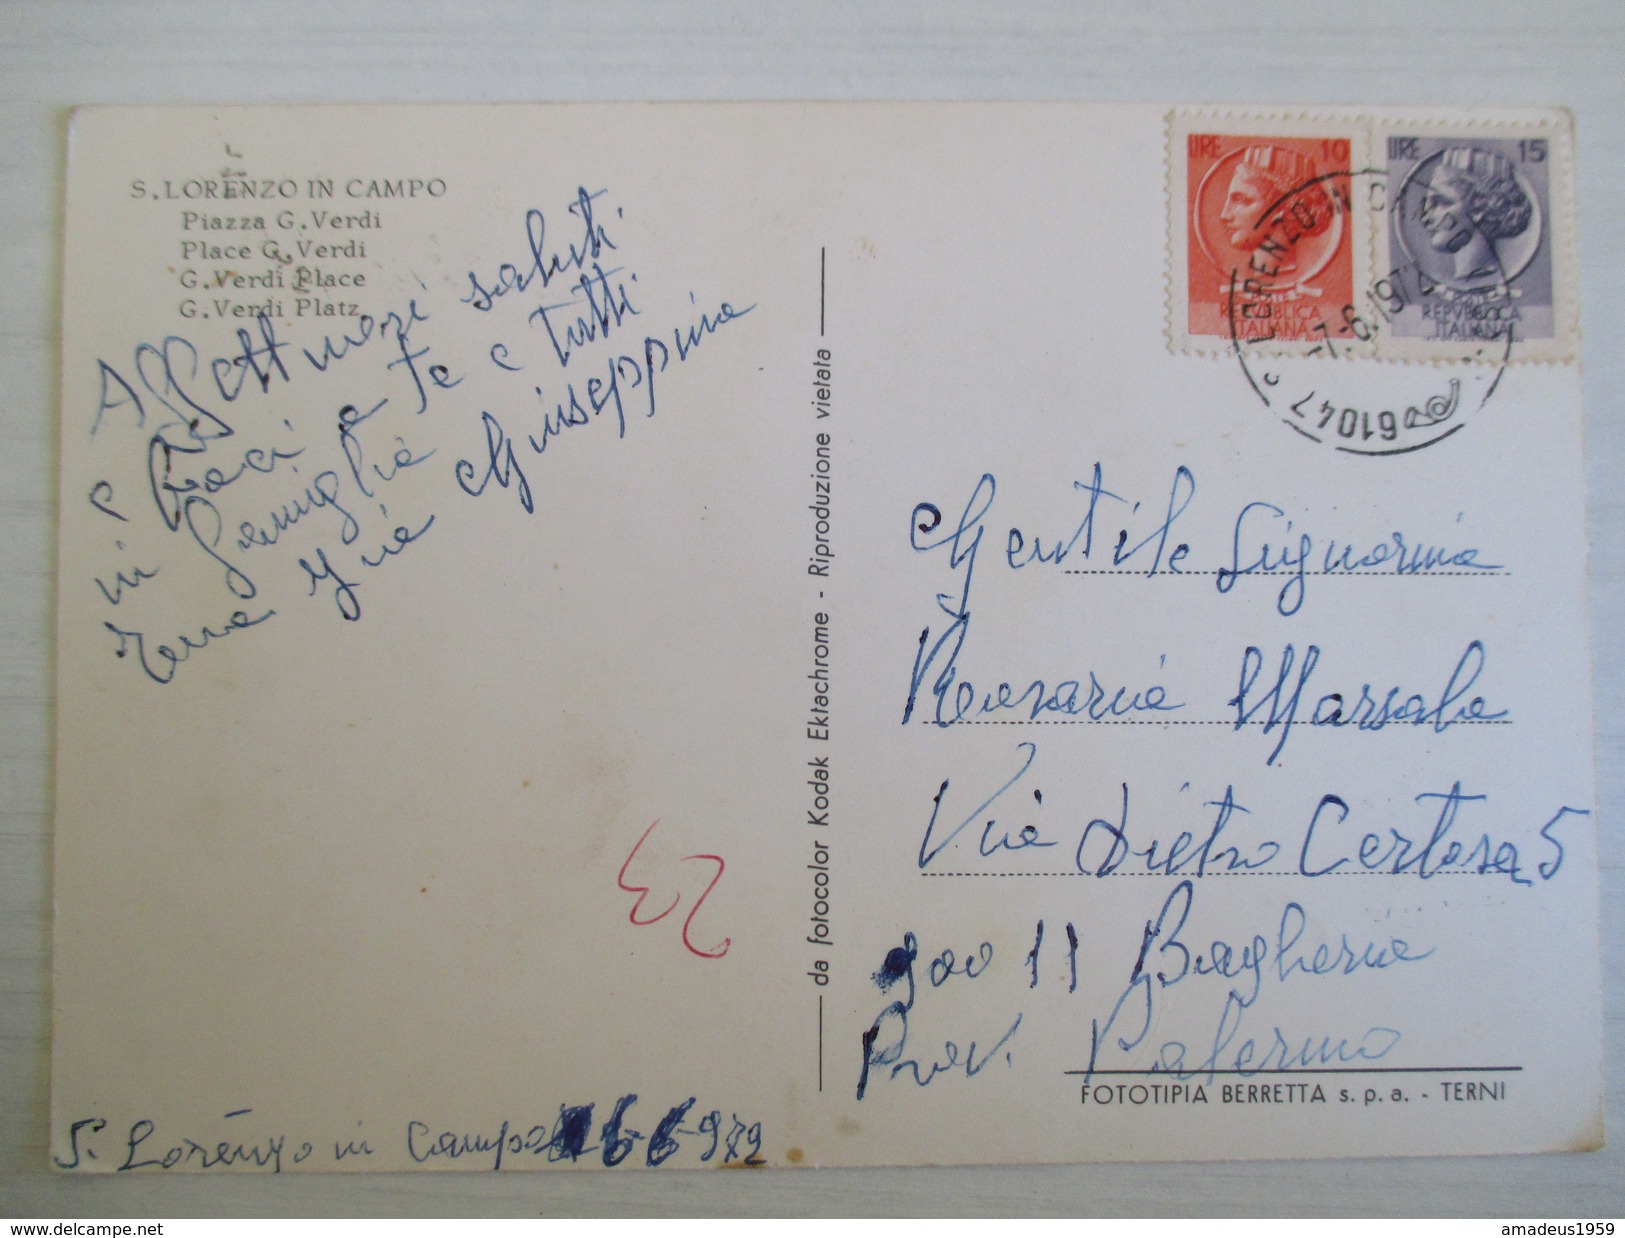 S. LORENZO IN CAMPO
Piazza G. Verdi
Place G. Verdi
G. Verdi Place
G. Verdi Platz
Affettuosi saluti
e Baci a te e tutti
in famiglia
Giuseppina
23
S. Lorenzo in Campo
da fotocolor Kodak Ektachrome - Riproduzione vietata
LIRE 10
REPVBBLICA
ITALIANA
LIRE 15
REPVBBLICA
ITALIANA
LORENZO IN CAMPO
61047
Gentile Signorina
Rosaria Marsala
Via Dietro Certosa 5
90011 Bagheria
Prov. Palermo
FOTOTIPIA BERRETTA s.p.a. - TERNI
www.delcampe.net
amadeus1959